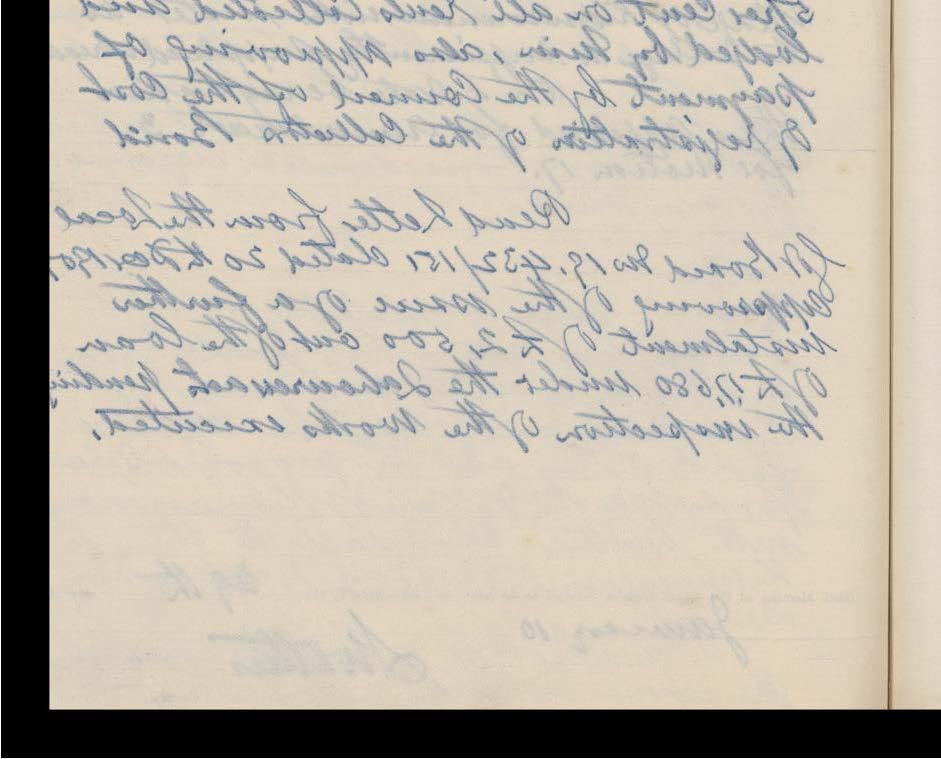 5 per Cent on all Rents Collected and
lodged by him, also approving of
payment by the Council of the Cost
of registration of the Collectors Bond
for Motion 17.
Read Letter from the Local
Govt Board No 19.432/151 dated 20th Dec
approving of the issue of a further
instalment of £2,500 out of the loan
of £7,680 under the Labourers act pending
the inspection of the Works executed.
January 10